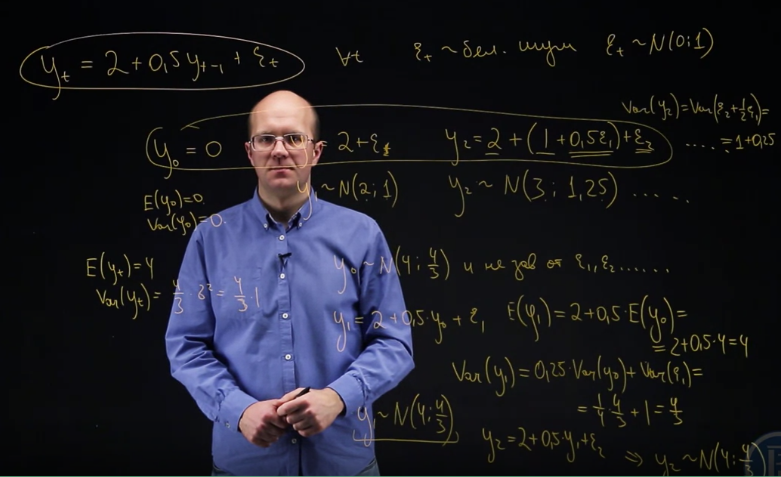 y_t = 2 + 0,5 y_{t-1} + ε_t ∀t ε_t ~ бел. шум ε_t ~ N(0;1)
Var(y_2) = Var(ε_2 + ½ε_1) =
.... = 1 + 0,25
y_0 = 0 2 + ε_1 y_2 = 2 + (1 + 0,5ε_1) + ε_2
E(y_0) = 0
Var(y_0) = 0.
y_1 ~ N(2; 1) y_2 ~ N(3; 1,25) .....
E(y_t) = 4
Var(y_t) = 4/3 · σ² = 4/3 · 1
y_0 ~ N(4; 4/3) и не зав от ε_1, ε_2 ......
y_1 = 2 + 0,5·y_0 + ε_1 E(y_1) = 2 + 0,5·E(y_0) =
= 2 + 0,5·4 = 4
Var(y_1) = 0,25·Var(y_0) + Var(ε_1) =
= 1/4 · 4/3 + 1 = 4/3
y_1 ~ N(4; 4/3)
y_2 = 2 + 0,5·y_1 + ε_2 ⇒ y_2 ~ N(4; 4/3)